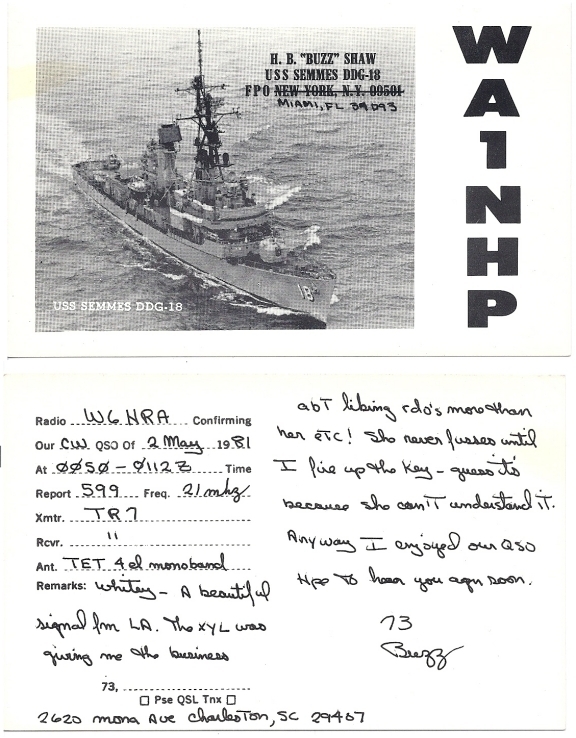 H. B. "BUZZ" SHAW
USS SEMMES DDG-18
FPO NEW YORK, N.Y. 09501
MIAMI, FL 34093
WA1NHP
18
USS SEMMES DDG-18
Radio W6NRA Confirming
Our CW QSO Of 2 May 1981
At 0050-0112Z Time
Report 599 Freq. 21 mhz
Xmtr. TR7
Rcvr. "
Ant. TET 4el monoband
Remarks: Whitey - A beautiful
signal fm LA. The XYL was
giving me the business
73,
Pse QSL Tnx
2620 Mona Ave Charleston, SC 29407
abT liking rdo's more than
her eTC! She never fusses until
I fire up the key - guess its
because she can't understand it.
Anyway I enjoyed our QSO
Hpe To hear you agn soon.
73
Buzz